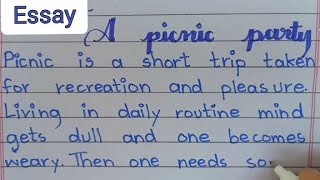 Essay
A picnic party
Picnic is a short trip taken
for recreation and pleasure.
Living in daily routine mind
gets dull and one becomes
weary. Then one needs so